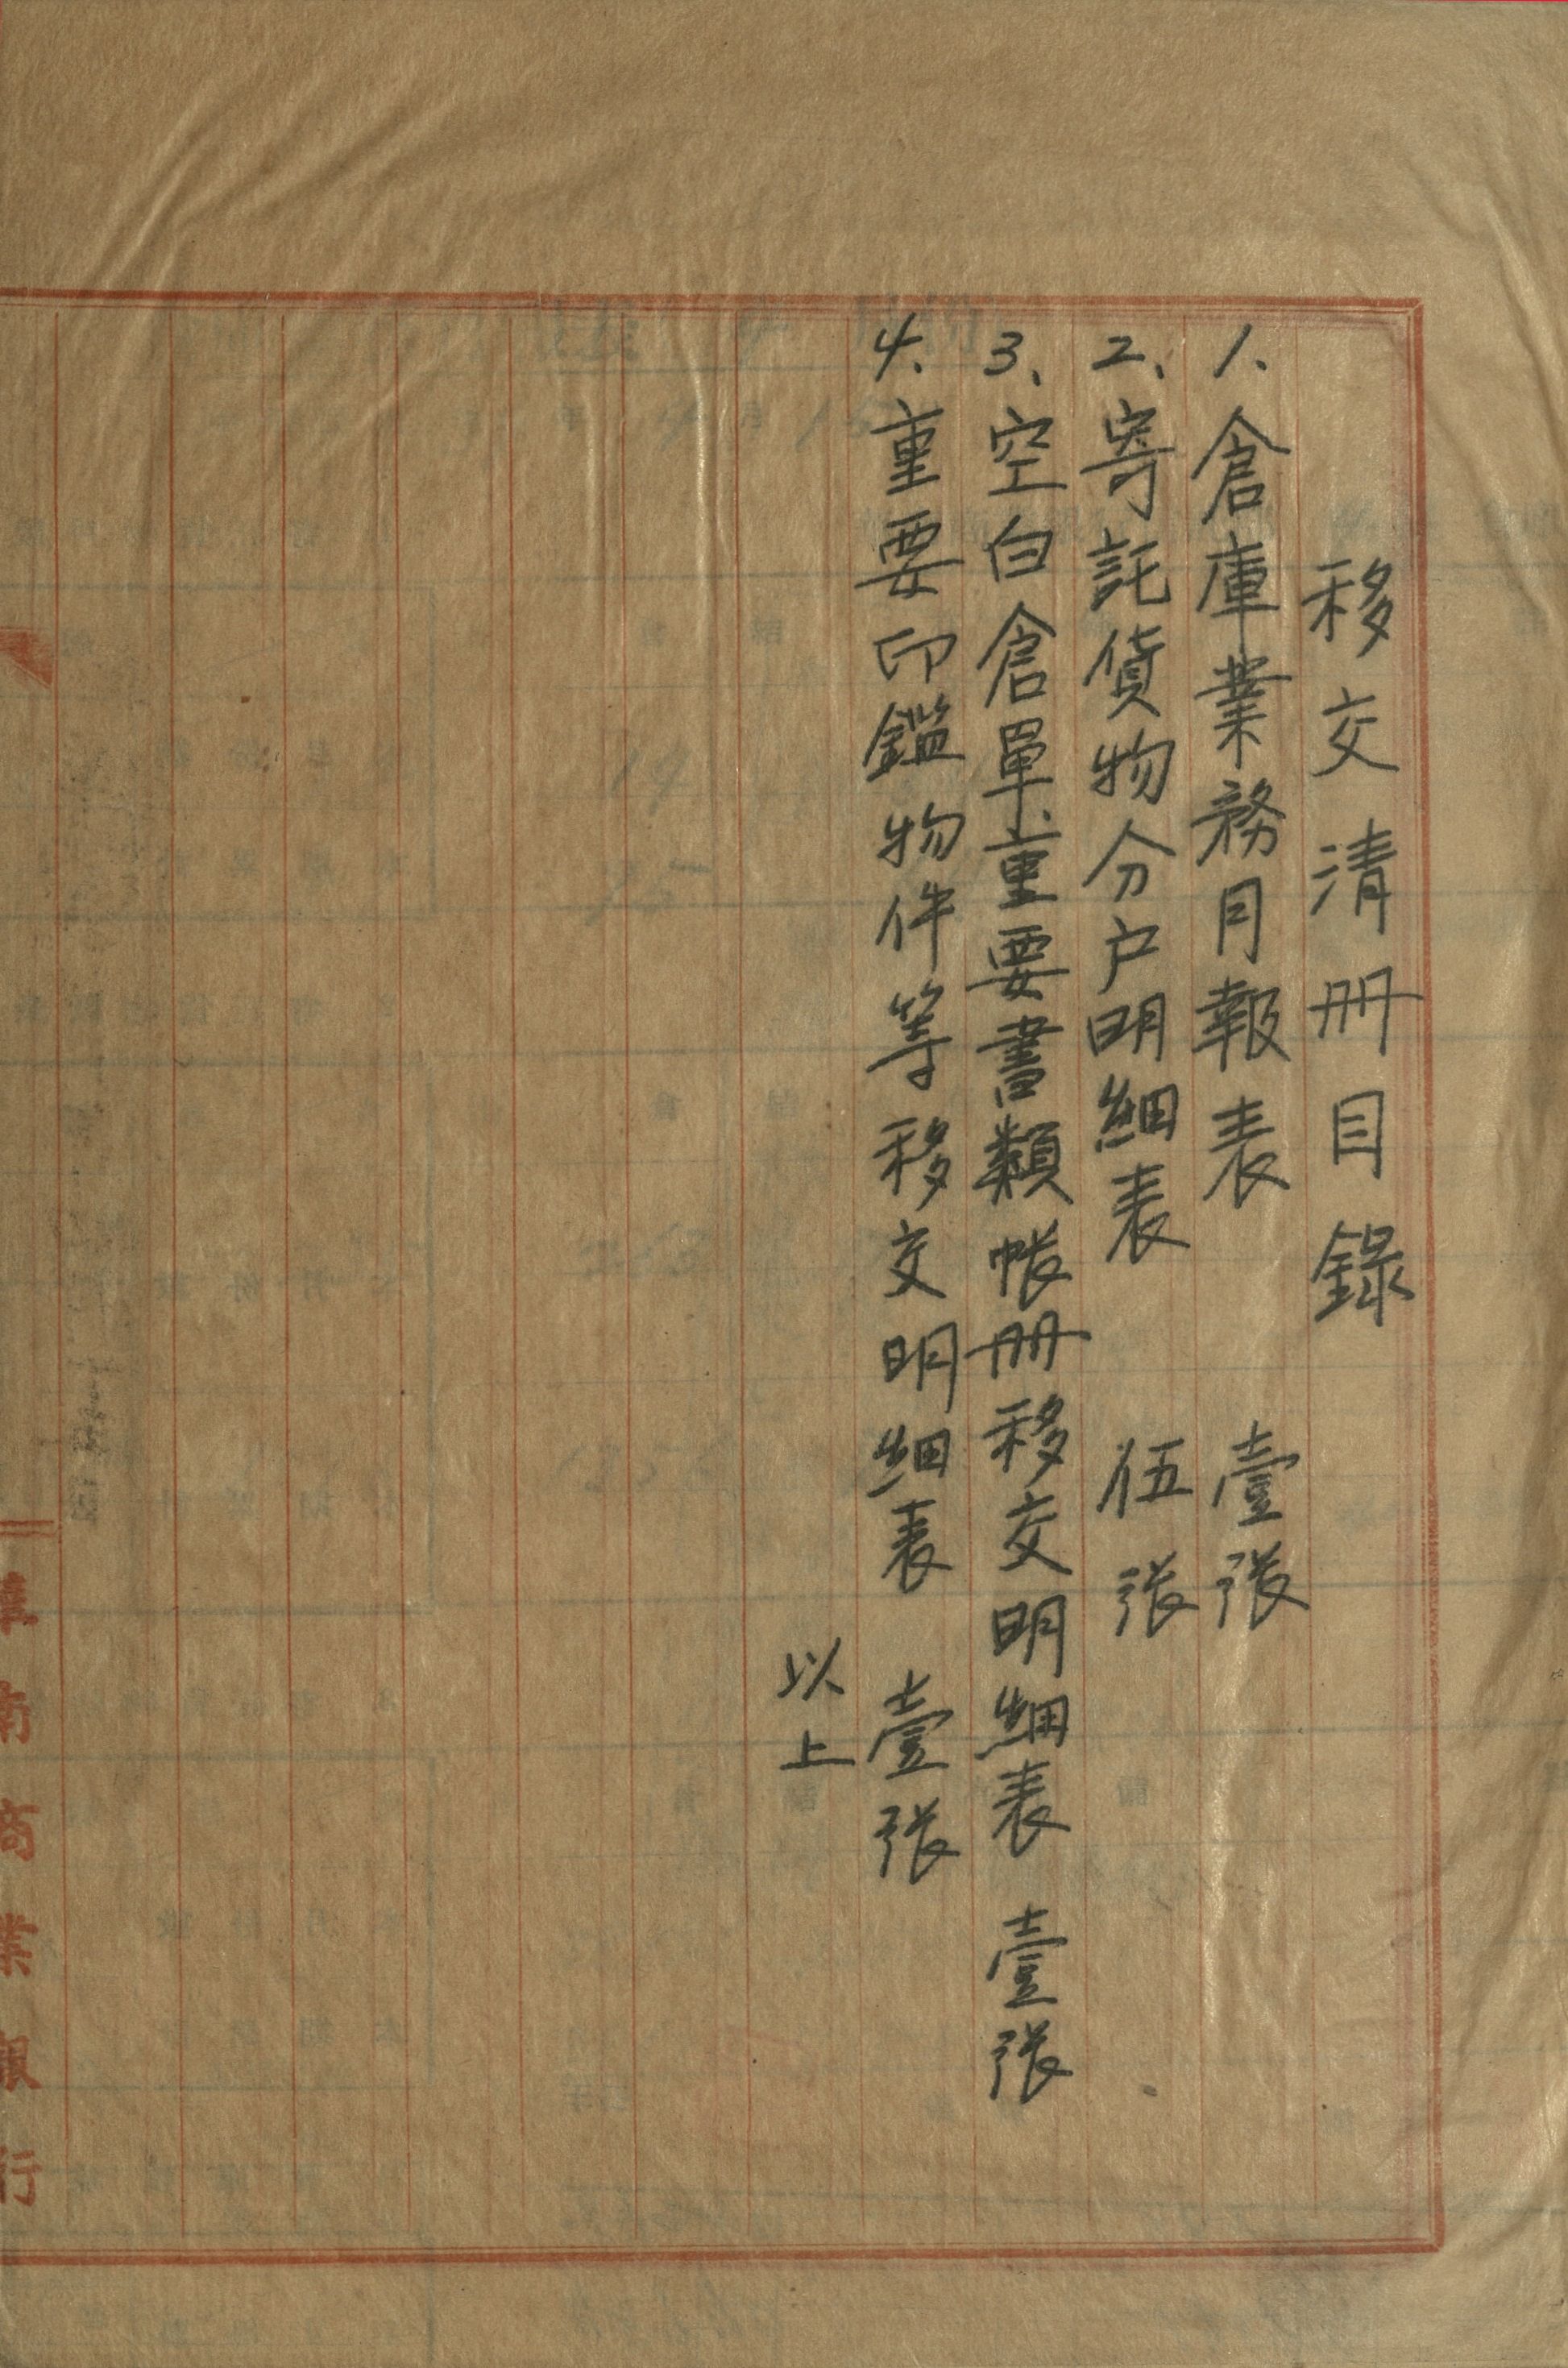 移交清册目錄
1、倉庫業務月報表　壹張
2、寄託貨物分户明細表　伍張
3、空白倉單、重要書類帳册移交明細表　壹張
4、重要印鑑物件等移交明細表　壹張
以上
華南商業銀行